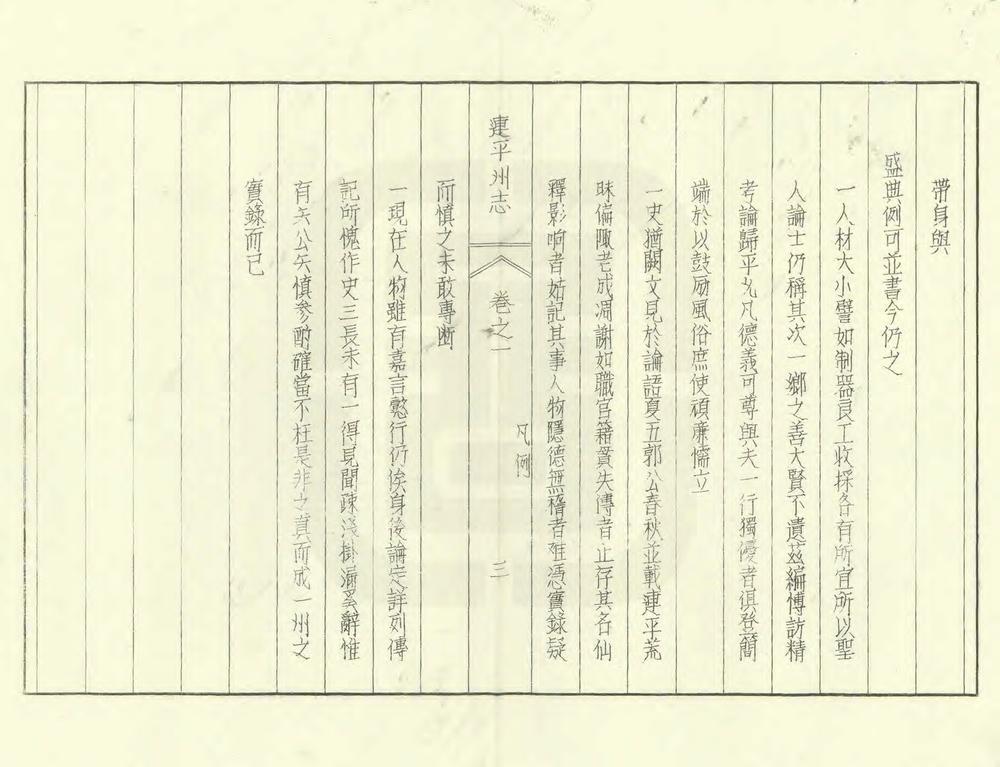 帶身與
盛典例可並書今仍之
一人材大小譬如制器良工收採各有所宜所以聖
人論士仍稱其次一鄉之善大賢不遺茲編博訪精
考論歸平允凡德義可尊與夫一行獨優者俱登簡
端於以鼓励風俗庶使頑廉懦立
一史猶闕文見於論語夏五郭公春秋並載連平荒
昧偏陬老成凋謝如職官籍貫失傳者止存其名仙
釋影响者姑記其事人物隱德無稽者难憑實錄疑
連平州志 卷之一 凡例 三
而慎之未敢專断
一現在人物雖有嘉言懿行仍俟身後論定詳列傳
記所愧作史三長未有一得見聞疎淺掛漏奚辭惟
有矢公矢慎參酌確當不枉是非之真而成一州之
實錄而已